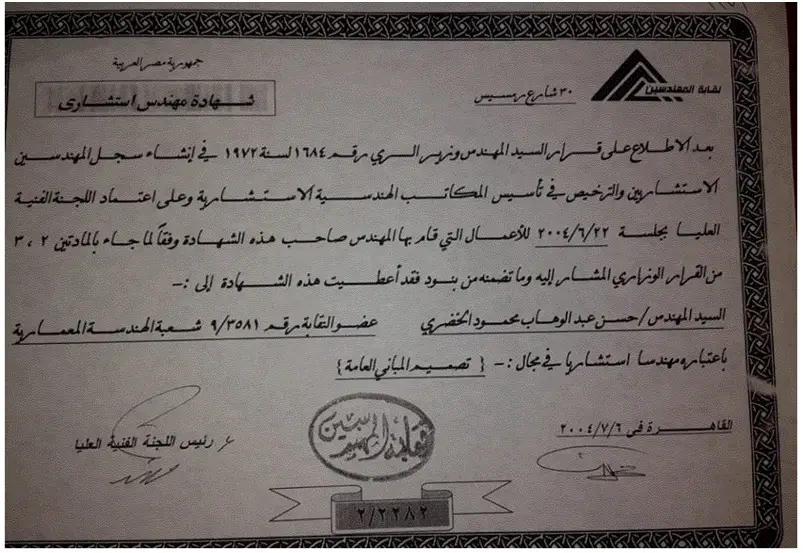 جمهورية مصر العربية
نقابة المهندسين
شهادة مهندس استشارى
٣٠ شارع رمسيس
بعد الاطلاع على قرار السيد المهندس وزير الري رقم ١٦٨٤ لسنة ١٩٧٢ في إنشاء سجل المهندسين
الاستشاريين والترخيص في تأسيس المكاتب الهندسية الاستشارية وعلى اعتماد اللجنة الفنية
العليا بجلسة ٢٠٠٤/٦/٢٢ للأعمال التي قام بها المهندس صاحب هذه الشهادة وفقاً لما جاء بالمادتين ٢ ، ٣
من القرار الوزاري المشار إليه وما تضمنه من بنود فقد أعطيت هذه الشهادة إلى :-
السيد المهندس / حسن عبد الوهاب محمود الخضري عضو النقابة رقم ٩/٣٥٨١ شعبة الهندسة المعمارية
باعتباره مهندسا استشاريا في مجال :- { تصميم المباني العامة }
القاهرة فى ٢٠٠٤/٧/٦
رئيس اللجنة الفنية العليا
نقابة المهندسين
٢/٢٢٨٢